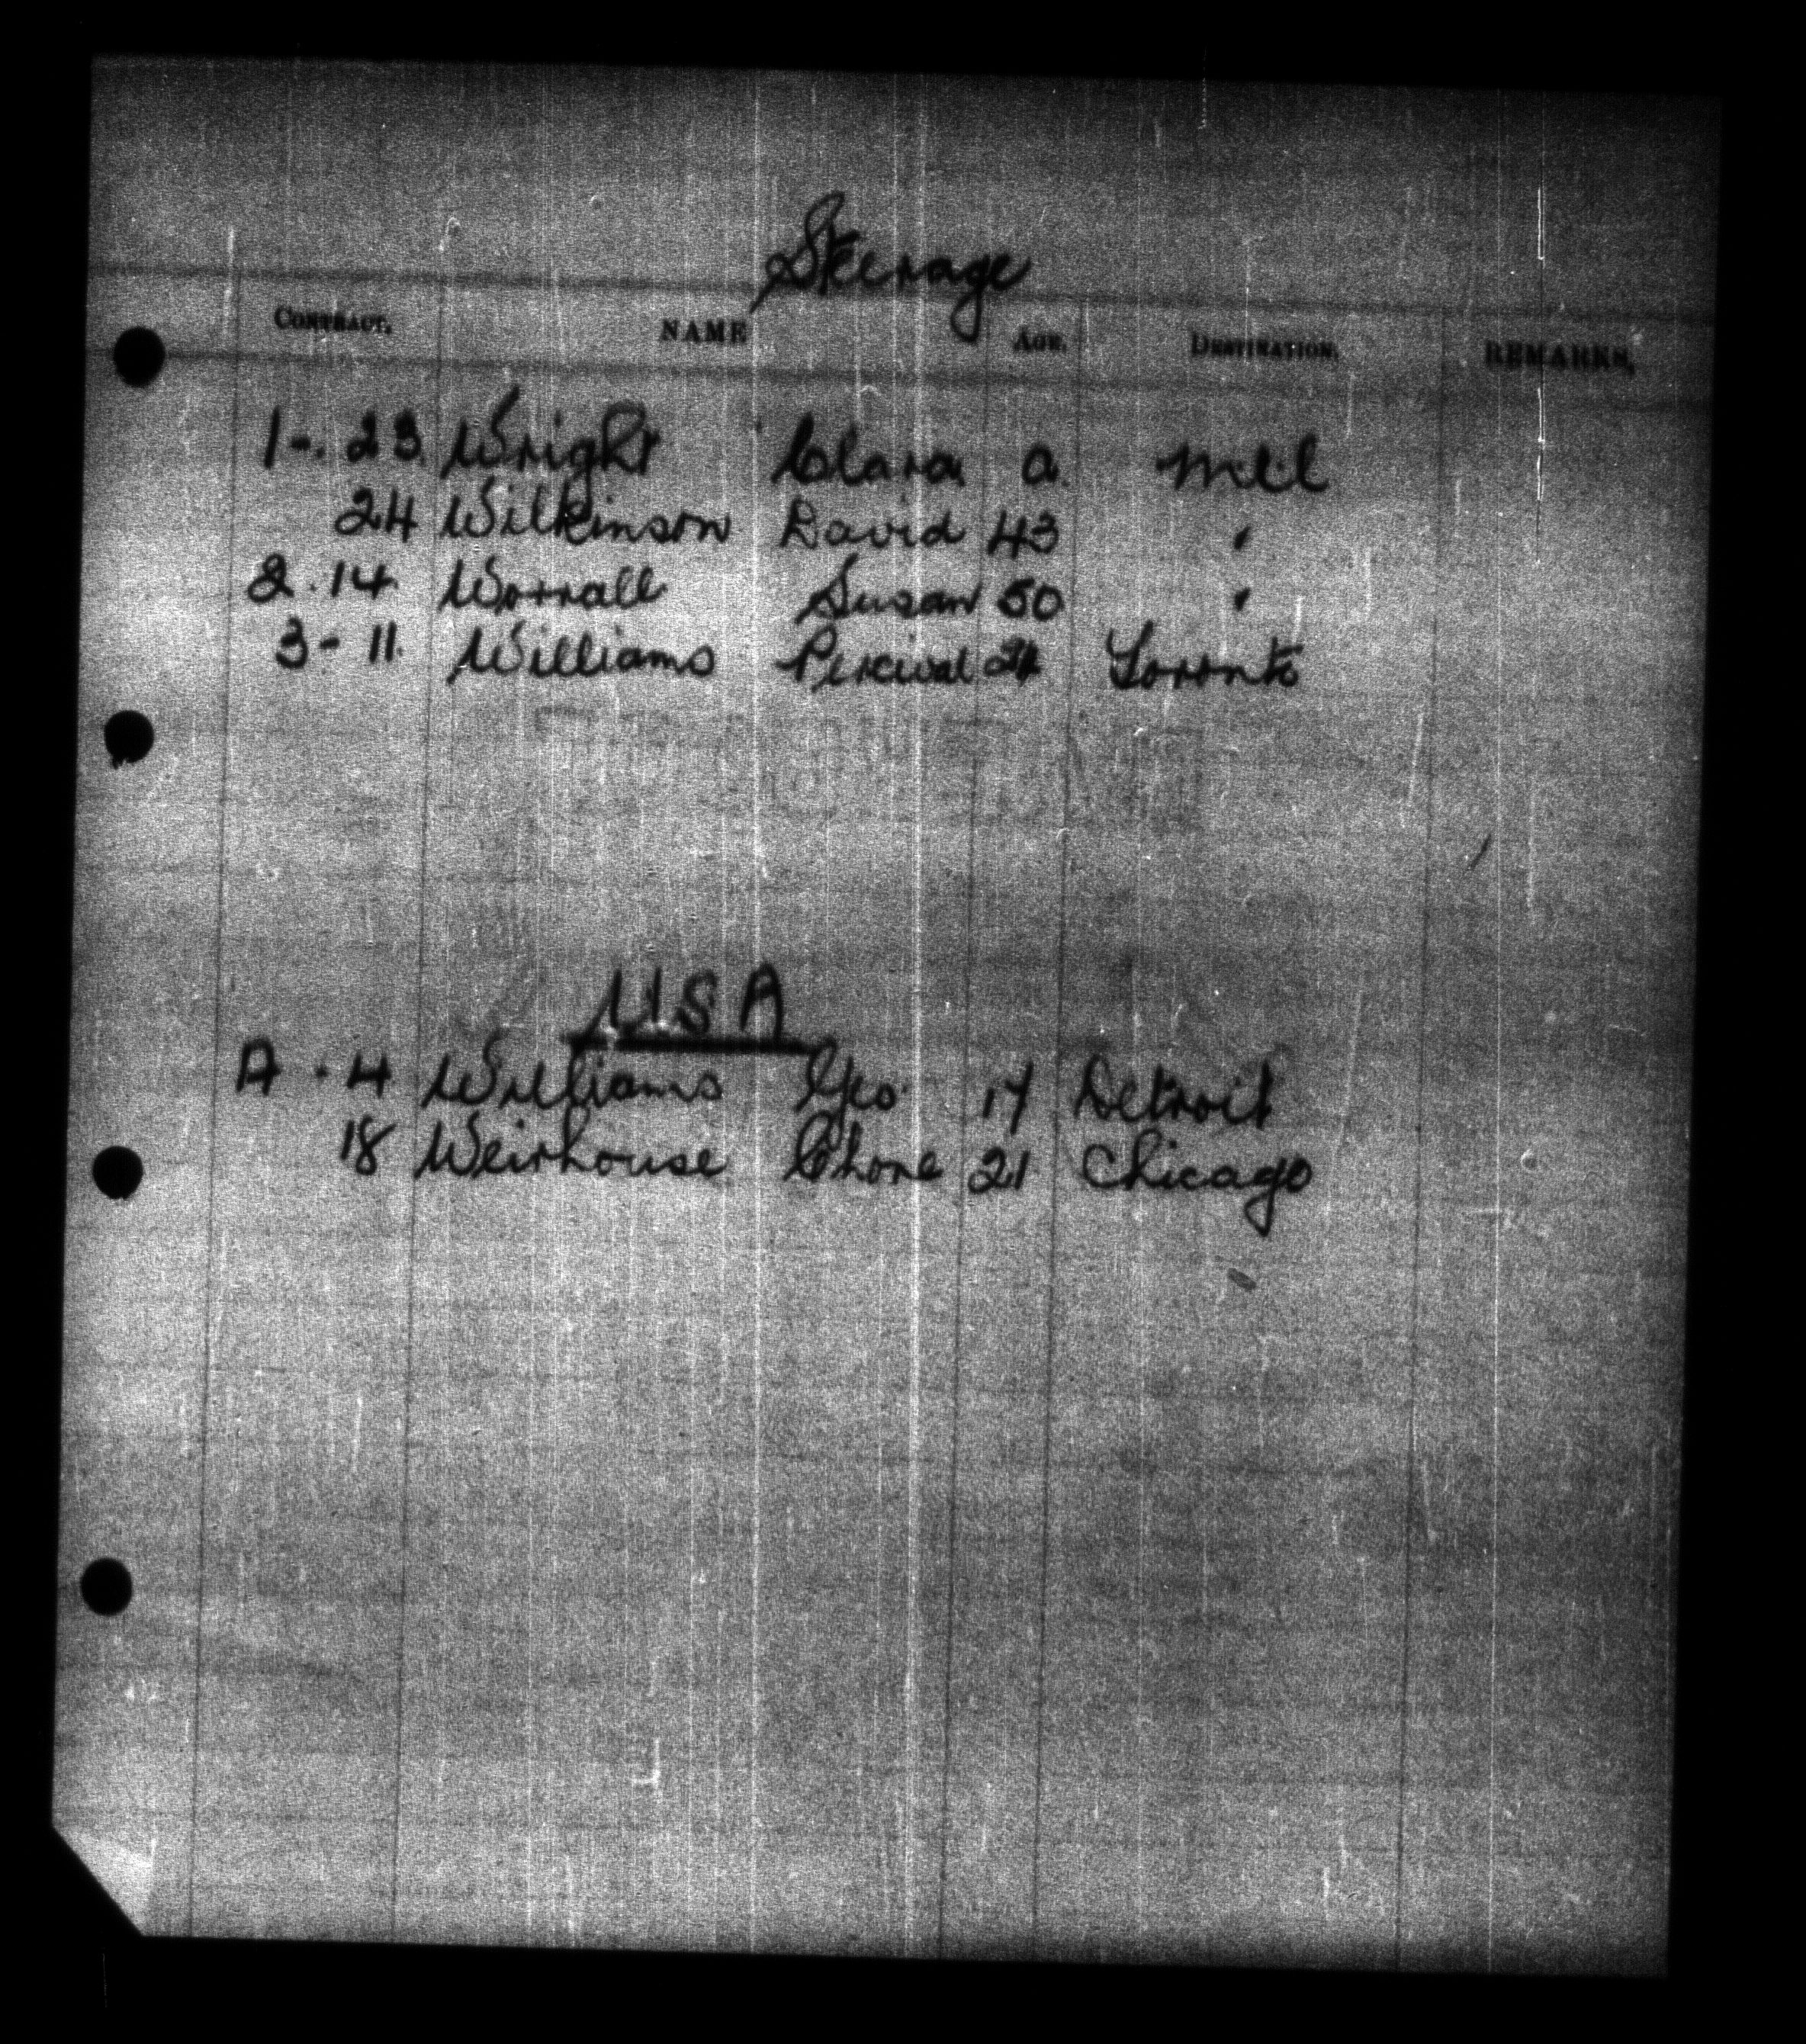 Steerage
CONTRACT. NAME AGE. DESTINATION. REMARKS,
1-. 23. Wright Clara a. Mtl
24 Wilkinson David 43 "
2. 14. Worrall Susan 50 "
3- 11. Williams Percival Toronto
USA
A - 4 Williams Geo. 17 Detroit
18 Weirhouse Chone 21 Chicago